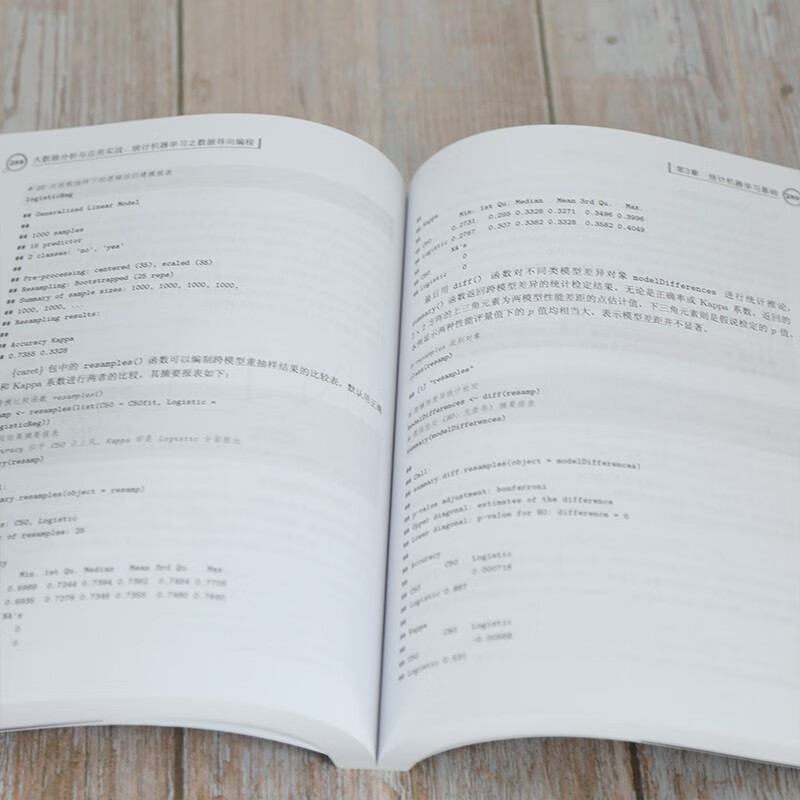 大数据分析与应用实战：统计机器学习之数据导向编程
logisticReg
## Generalized Linear Model
##
## 1000 samples
## 15 predictor
## 2 classes: 'no', 'yes'
##
## Pre-processing: centered (35), scaled (35)
## Resampling: Bootstrapped (25 reps)
## Summary of sample sizes: 1000, 1000, 1000, 1000,
## 1000, 1000, ...
## Resampling results:
##
## Accuracy Kappa
## 0.7355 0.3328
{caret} 包中的 resamples() 函数可以编制跨模型重抽样结果的比较表，默认用正确
和 Kappa 系数进行两者的比较，其摘要报表如下：
resamples()
amp <- resamples(list(C50 = C50fit, Logistic =
gisticReg))
ry(resamp)
l:
mary.resamples(object = resamp)
s: C50, Logistic
r of resamples: 25
cy
Min. 1st Qu. Median Mean 3rd Qu. Max.
NA's
0
0
第3章 统计机器学习基础
## Kappa
## Min. 1st Qu. Median Mean 3rd Qu. Max.
## C50 0.2731 0.295 0.3328 0.3271 0.3496 0.3996
## logistic 0.2767 0.307 0.3382 0.3328 0.3582 0.4049
## NA's
## C50 0
## logistic 0
最后用 diff() 函数对不同类模型差异对象 modelDifferences 进行统计推论，
summary() 函数返回跨模型差异的统计检定结果，无论是正确率或 Kappa 系数，返回的
2×2 方阵的上三角元素为两模型性能差距的点估计值，下三角元素则是假说检定的 p 值，
本例显示两种性能评量值下的 p 值均相当大，表示模型差距并不显著。
# resamples 类别对象
class(resamp)
## [1] "resamples"
modelDifferences <- diff(resamp)
summary(modelDifferences)
##
## Call:
## summary.diff.resamples(object = modelDifferences)
##
## p-value adjustment: bonferroni
## Upper diagonal: estimates of the difference
## Lower diagonal: p-value for H0: difference = 0
##
## Accuracy
## C50 Logistic
## C50 0.000718
## Logistic 0.887
##
## Kappa
## C50 Logistic
## C50
## logistic